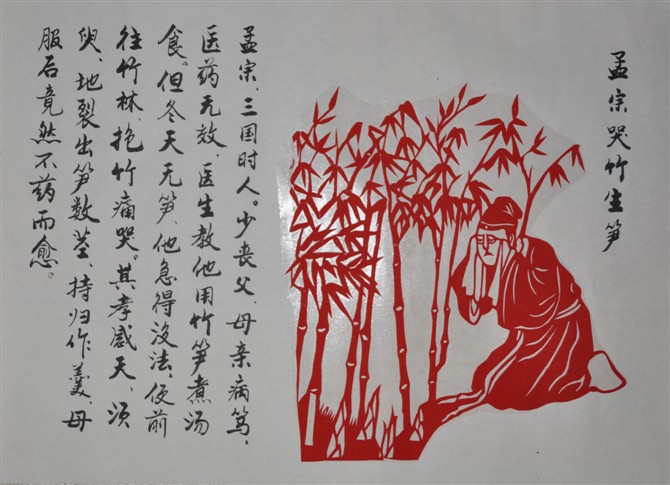 孟宗哭竹生笋
孟宗，三国时人。少丧父、母亲病笃，
医药无效，医生教他用竹笋煮汤
食。但冬天无笋，他急得没法，便前
往竹林，抱竹痛哭。其孝感天，须
臾、地裂出笋数茎、持归作羹，母
服后竟然不药而愈。